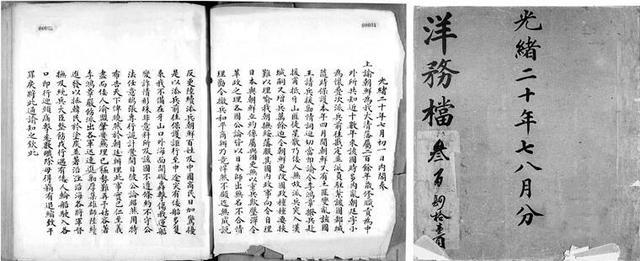 光緒二十年七月初一日內閣奉
上諭朝鮮為我大清藩屬二百餘年歲修職貢為中
外所共知近十數年來該國時多內亂朝廷字小
為懷疊次派兵前往戡定並派員駐紮該國都城
隨時保護本年四月間朝鮮又有土匪變亂該國
王請兵援勦情詞迫切當即諭令李鴻章撥兵赴
援甫抵牙山匪徒星散乃倭人無故派兵突入漢
城嗣又增兵萬餘迫令朝鮮更改國政種種要挾
難以理喻我朝撫綏藩服其國內政事向令自理
日本與朝鮮立約係屬與國更無以重兵欺壓強令
革政之理各國公論皆以日本師出無名不合情
理勸令撤兵和平商辦乃竟悍然不顧迄無成說
反更陸續添兵朝鮮百姓及中國商民日加驚擾
是以添兵前往保護詎行至中途突有倭船多隻
乘我不備在牙山口外海面開礮轟擊傷我運船
變詐情形殊非意料所及該國不遵條約不守公
法任意鴟張專行詭計釁開自彼公論昭然用特
布告天下俾曉然於朝廷辦理此事實已仁至義
盡而倭人渝盟肇釁無理已極勢難再予姑容著
李鴻章嚴飭派出各軍迅速進勦厚集雄師陸續
進發以拯韓民於塗炭並著沿江沿海各將軍督
撫及統兵大臣整飭戎行遇有倭人輪船駛入各
口即行迎頭痛擊悉數殲除毋得稍有退縮致干
罪戾將此通諭知之欽此
光緒二十年七八月分
洋務檔
叁百